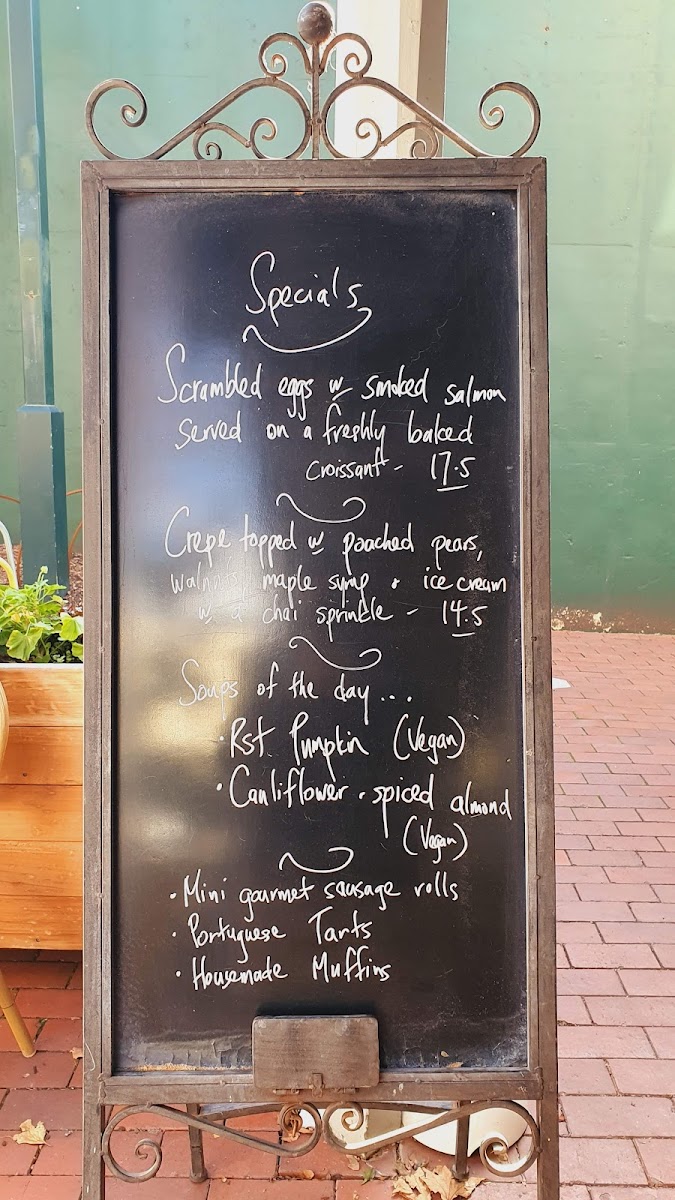 Specials
Scrambled eggs w smoked salmon
served on a freshly baked
croissant - 17.5
Crepe topped w poached pears,
walnuts, maple syrup + ice cream
w a chai sprinkle - 14.5
Soups of the day...
• Rst Pumpkin (Vegan)
• Cauliflower + spiced almond
(Vegan)
• Mini gourmet sausage rolls
• Portuguese Tarts
• Housemade Muffins